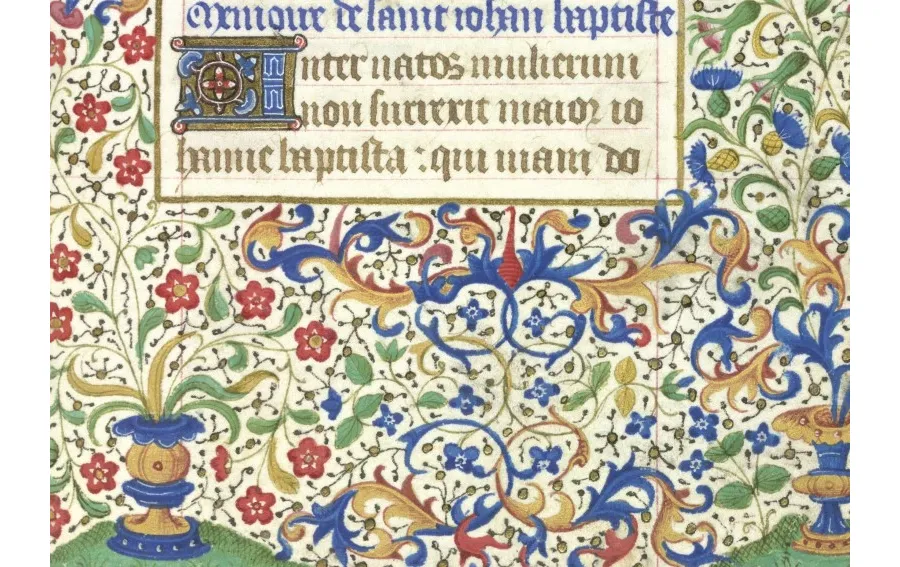 Memoire de saint iohan baptiste
Inter natos mulierum
non surrexit maior io
hanne baptista : qui viam do